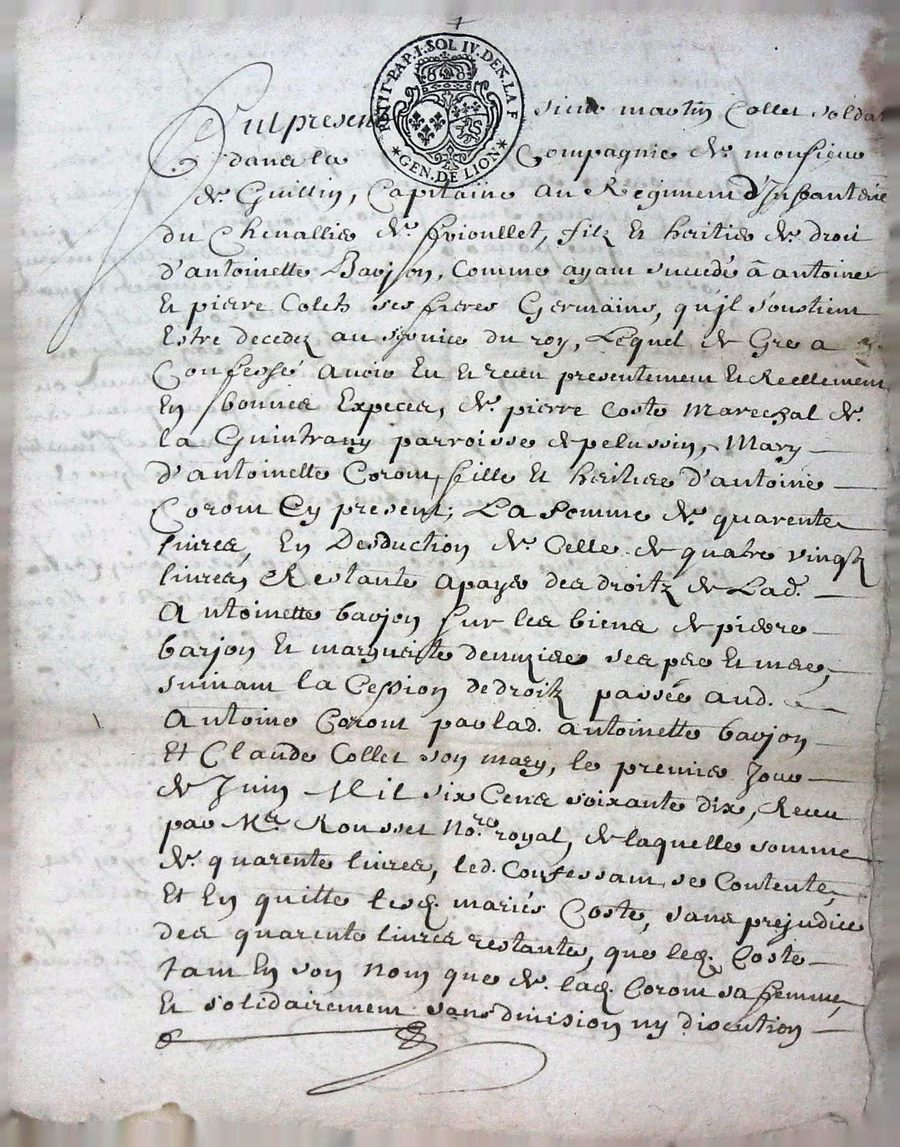 PETIT·PAP·I·SOL IV·DEN·LA F
GEN·DE LION
Fut present sieur martin Collet soldat
dans la Compagnie de monsieur
de Guillin, Capitaine au Regiment d'Infanterie
du Chevallier de, filz et heritier de droit
d'antoinette Barjon, Comme ayant succedé à antoine
Et pierre Coletz ses freres Germains, qu'jl soustient
Estre decedez au service du roy, Lequel de Gre a
Confessé avoir Eu et receu presentement et Reellement
En bonnes Expeces, de pierre Coste Marechal de
la Guintrany parroisse de pelussin, Mary
d'antoinette Coront, fille et heritiere d'antoine
Coront Cy present, La somme de quarente
livres, En Desduction de Celle de quatre vingtz
livres, Restante a payer des droitz de Lad.
Antoinette barjon sur les biens de pierre
barjon Et marguerite deuuziere ses pere et mere,
suivant la Cession de droitz passée aud.
Antoine Coront par lad. antoinette barjon
Et Claude Collet son mary, le premier Jour
de Juin Mil six Cens soixante dix, Receu
par Me Rousset no.re royal, de laquelle somme
de quarente livres, led. Confessant, se Contente,
Et En quitte lesd. mariés Coste, sans prejudice
des quarente livres restante, que led. Coste
tant En son nom que de lad. Coront sa femme,
Et solidairement sans division ny discution